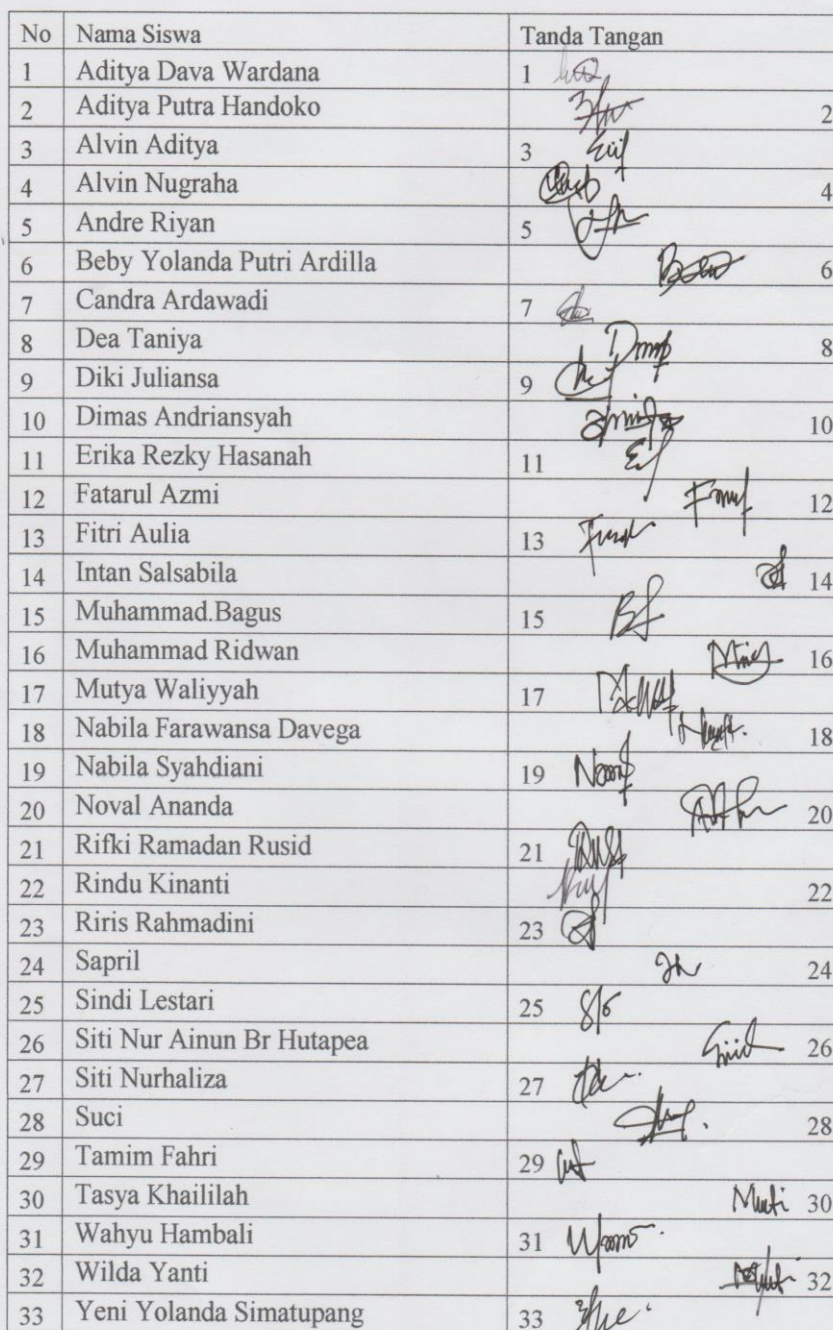 No Nama Siswa Tanda Tangan
1 Aditya Dava Wardana 1
2 Aditya Putra Handoko 2
3 Alvin Aditya 3
4 Alvin Nugraha 4
5 Andre Riyan 5
6 Beby Yolanda Putri Ardilla 6
7 Candra Ardawadi 7
8 Dea Taniya 8
9 Diki Juliansa 9
10 Dimas Andriansyah 10
11 Erika Rezky Hasanah 11
12 Fatarul Azmi 12
13 Fitri Aulia 13
14 Intan Salsabila 14
15 Muhammad.Bagus 15
16 Muhammad Ridwan 16
17 Mutya Waliyyah 17
18 Nabila Farawansa Davega 18
19 Nabila Syahdiani 19
20 Noval Ananda 20
21 Rifki Ramadan Rusid 21
22 Rindu Kinanti 22
23 Riris Rahmadini 23
24 Sapril 24
25 Sindi Lestari 25
26 Siti Nur Ainun Br Hutapea 26
27 Siti Nurhaliza 27
28 Suci 28
29 Tamim Fahri 29
30 Tasya Khaililah 30
31 Wahyu Hambali 31
32 Wilda Yanti 32
33 Yeni Yolanda Simatupang 33